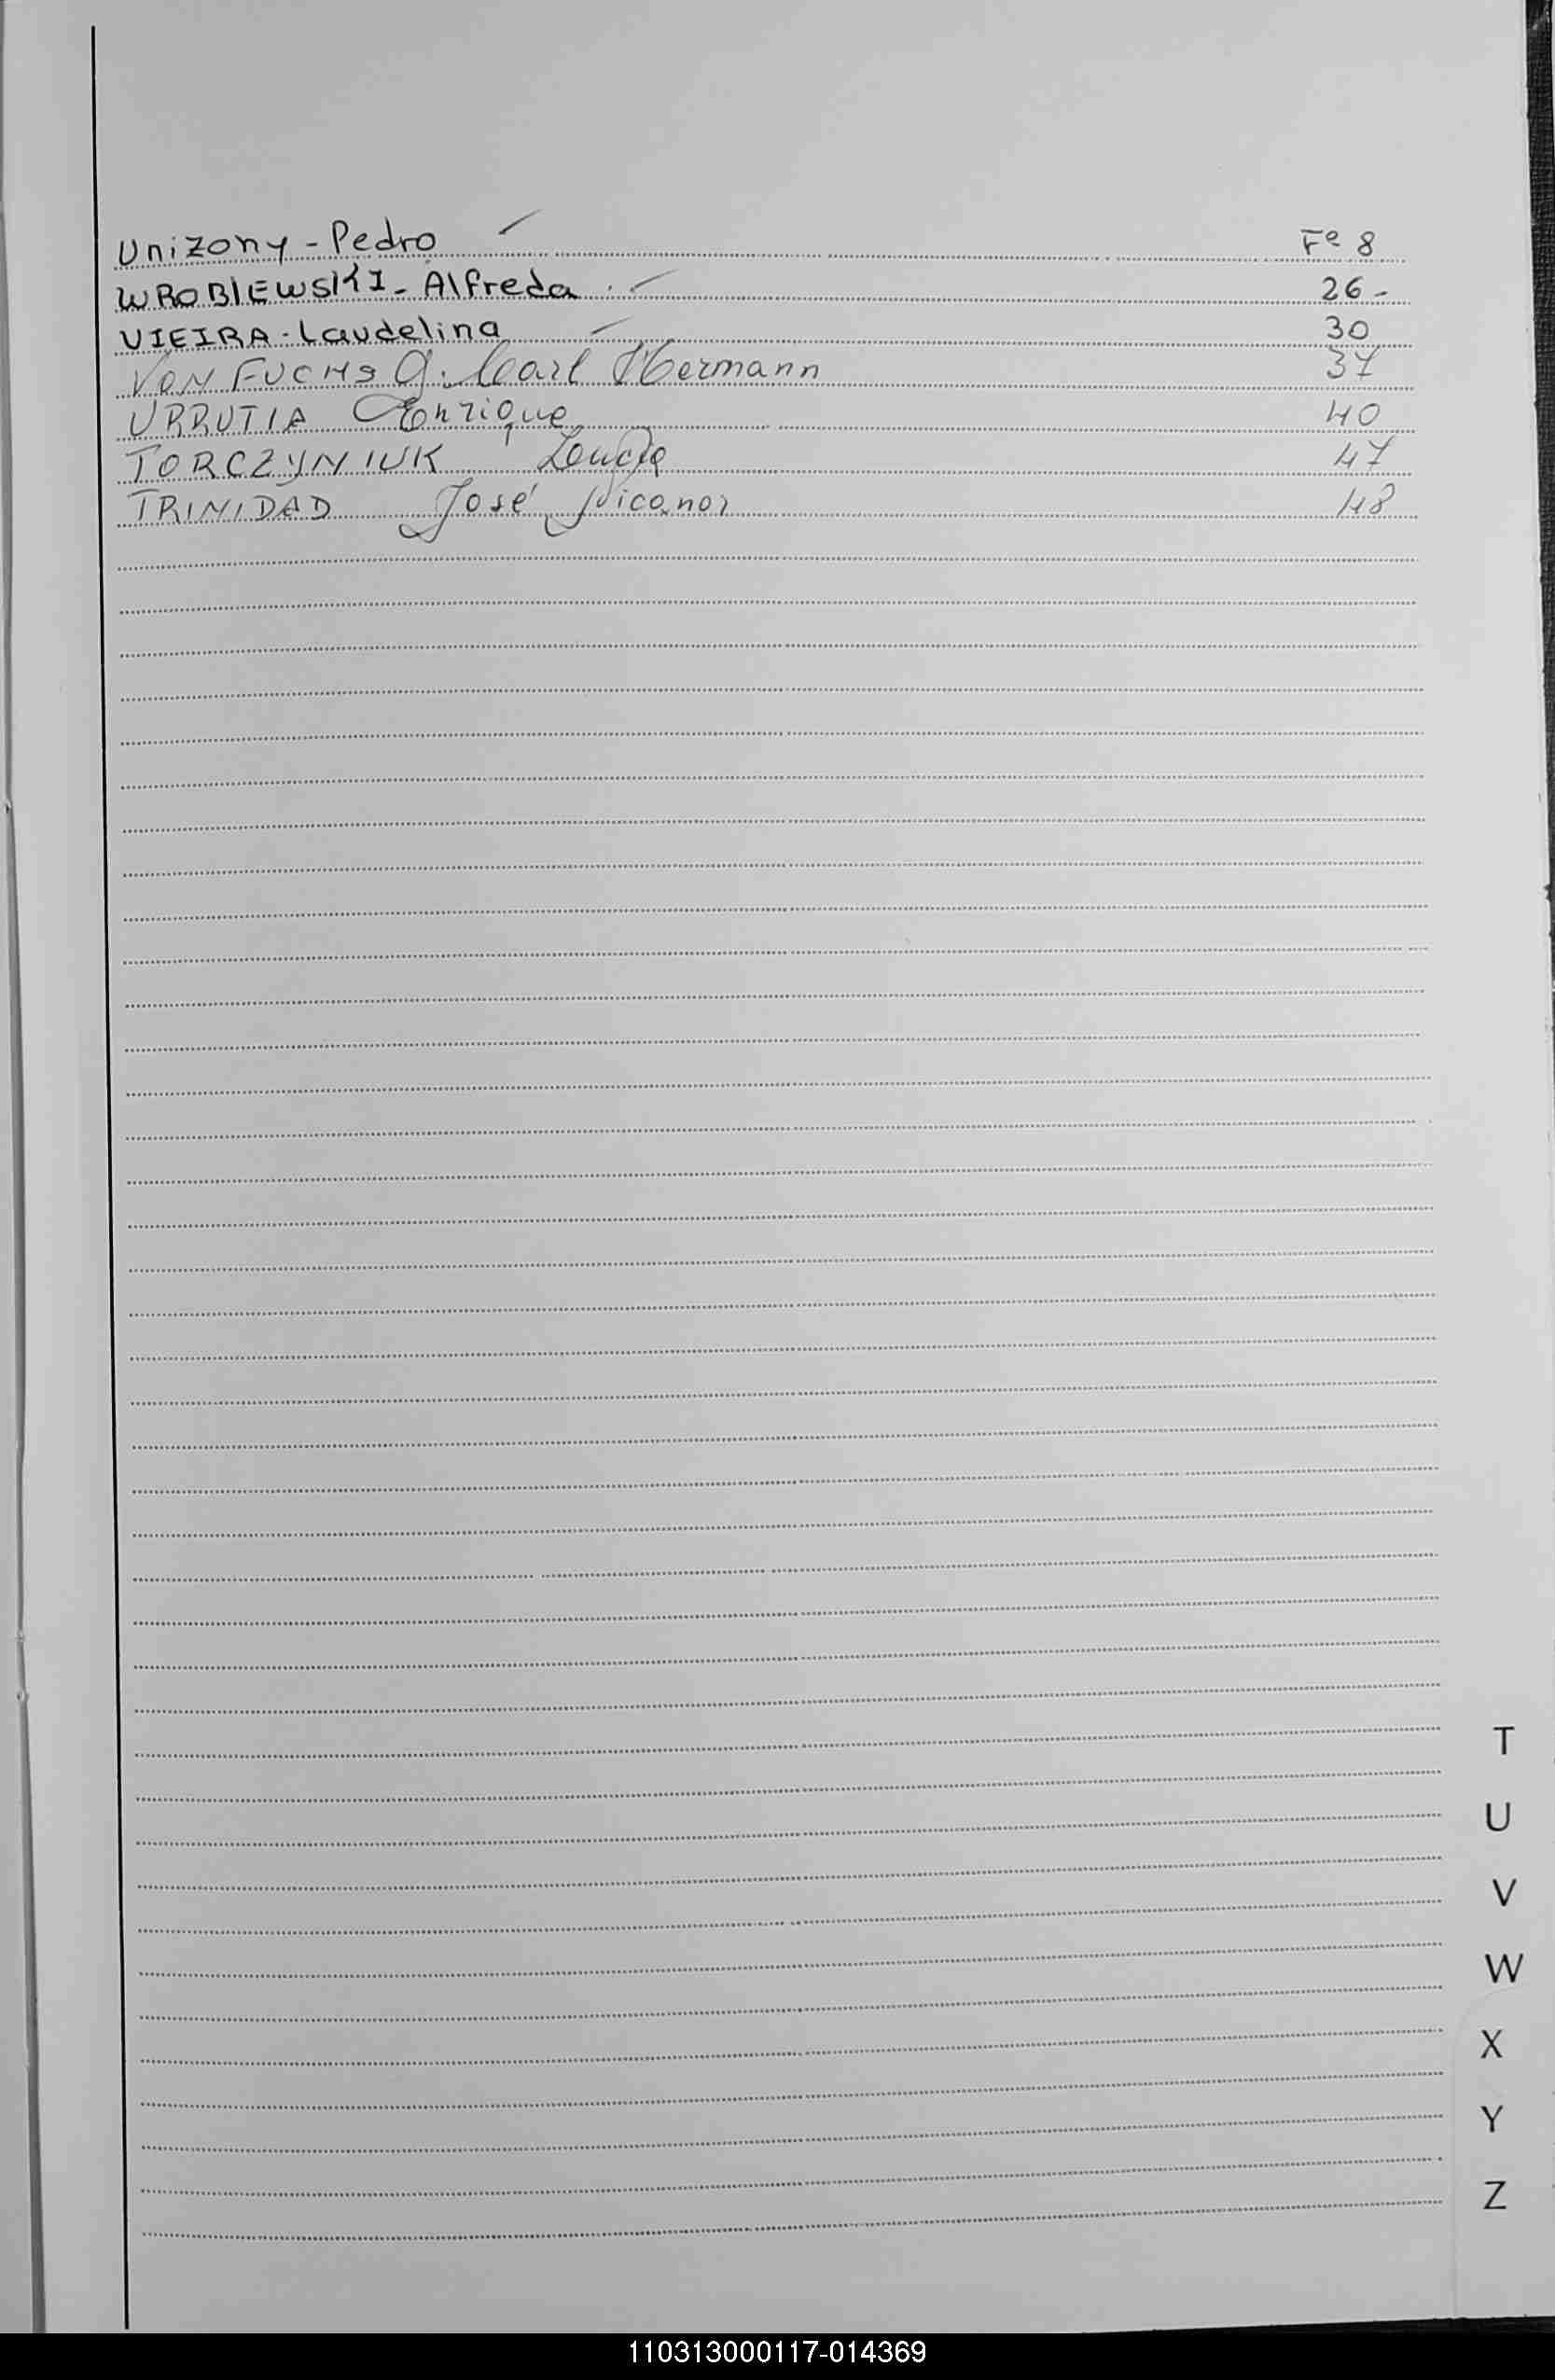 Unizony - Pedro Fº 8
WROBlEWSKI - Alfreda 26 -
VIEIRA - Laudelina 30
VON FUCHS G. Carl Hermann 37
URRUTIA Enrique 40
TORCZYNIUK 47
TRINIDAD José Nicanor 48
T
U
V
W
X
Y
Z
110313000117-014369